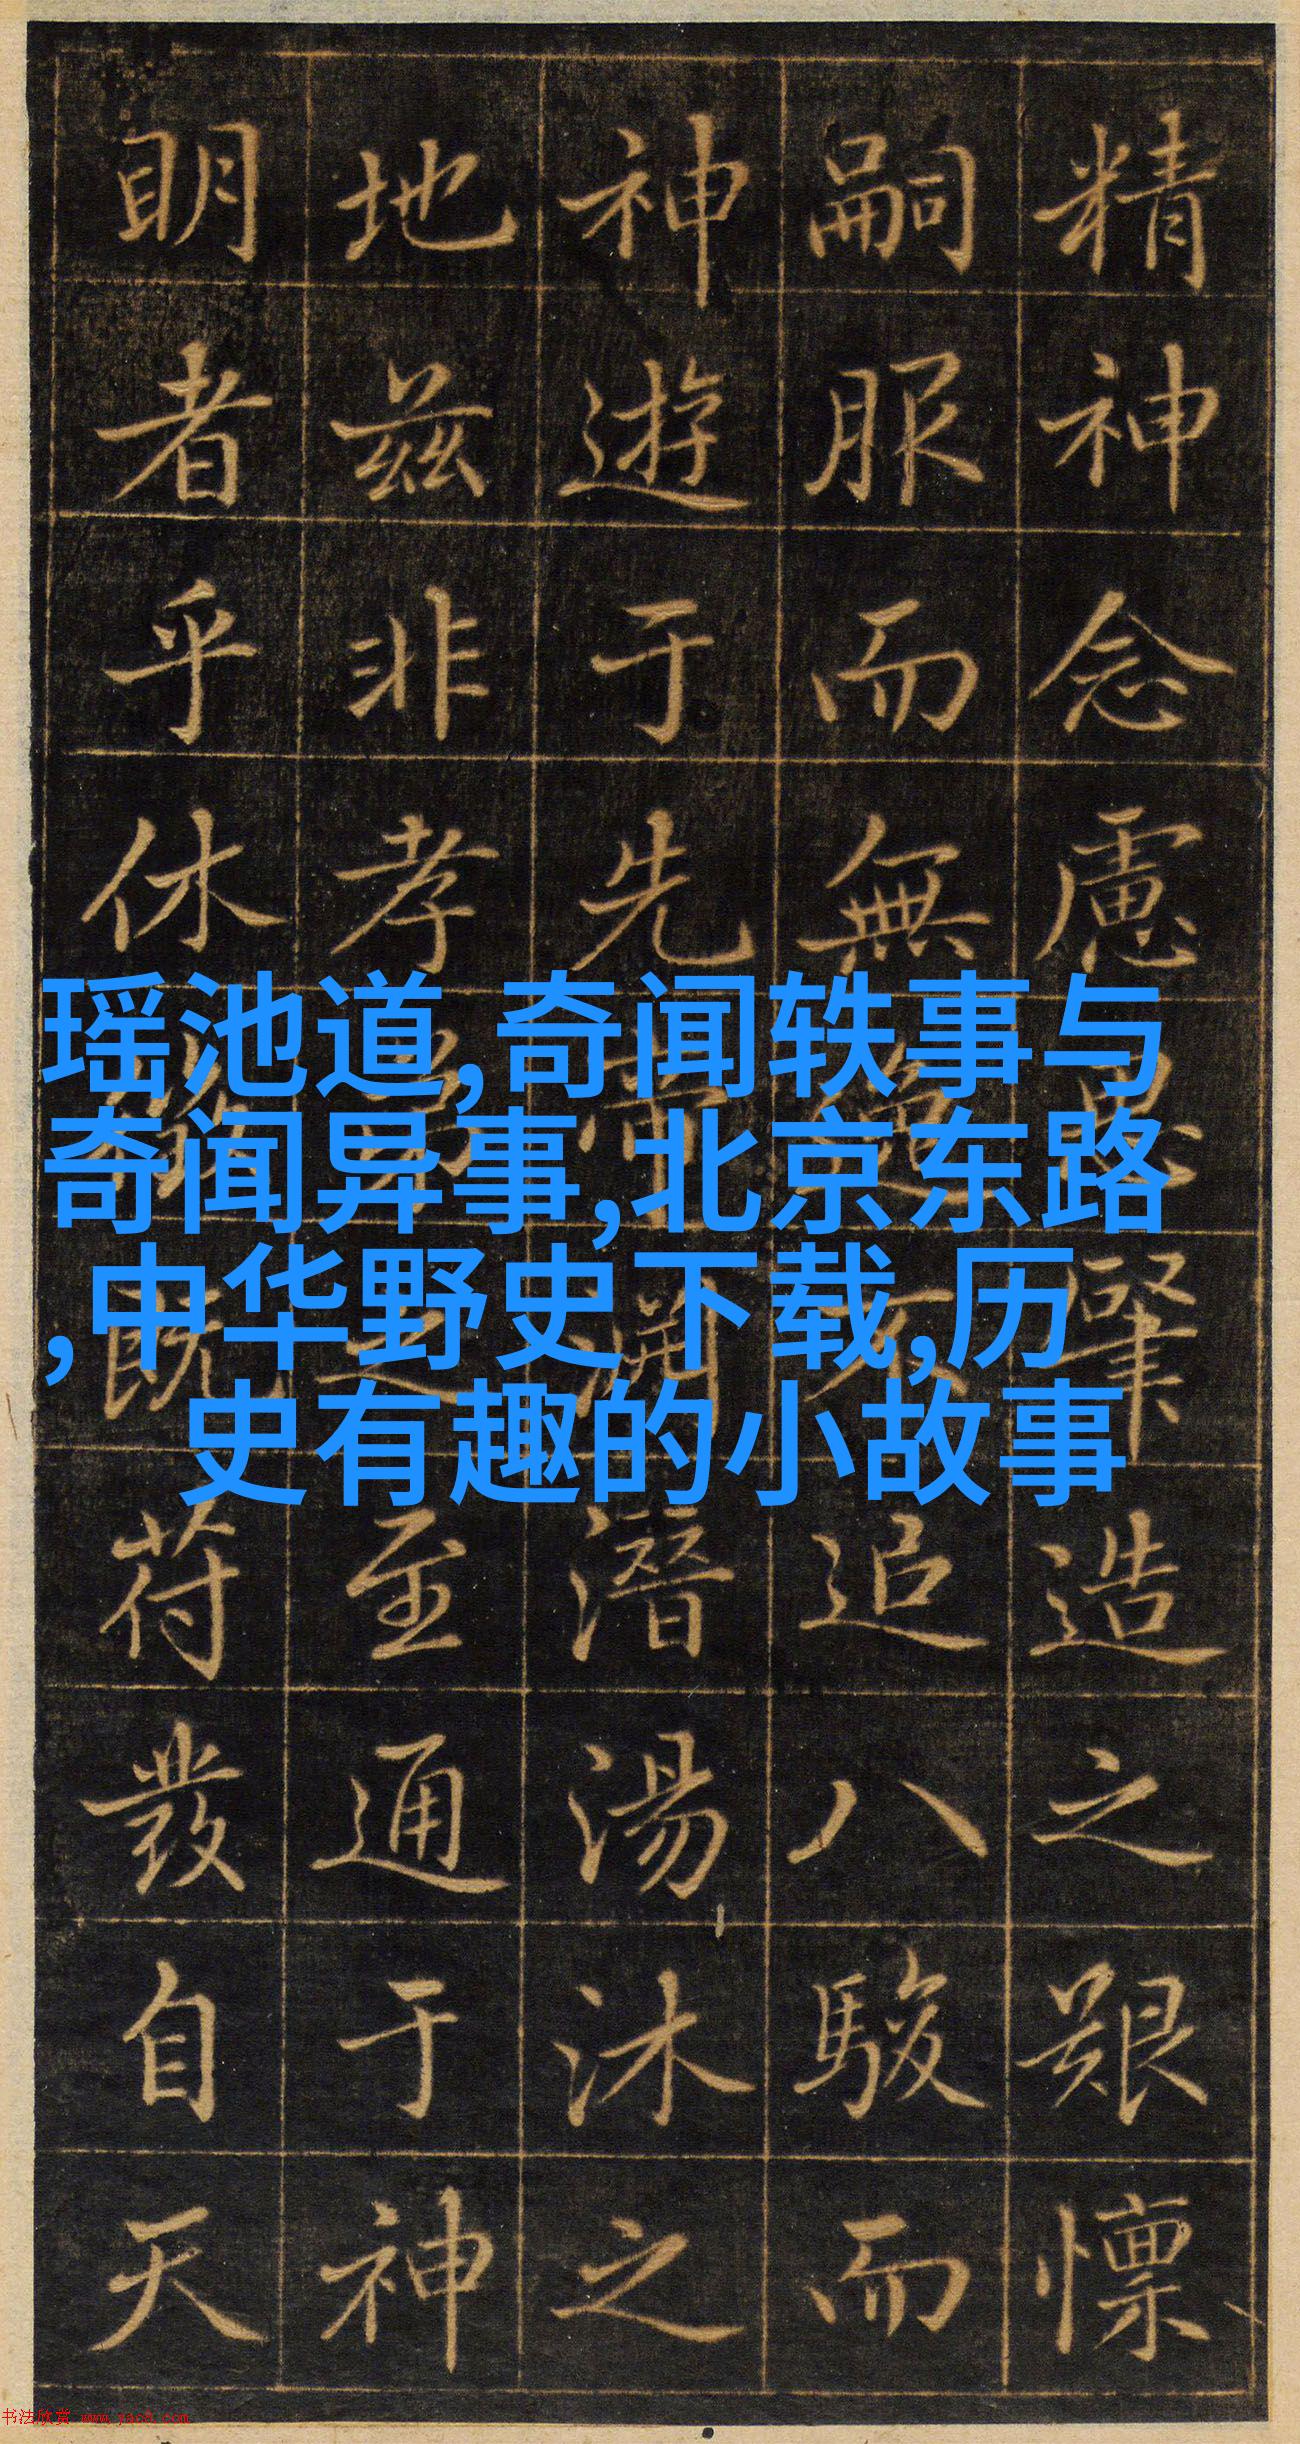 精神念慮肇造之艱懍
嗣服而無追八駿而
神遊于先帝淵潛湯沐之
地茲非孝之至通于神
明者乎休既符發自天
瑶池道,奇闻轶事与
奇闻异事,北京东路
,中华野史下载,历
史有趣的小故事
书法欣赏 www.yac8.com